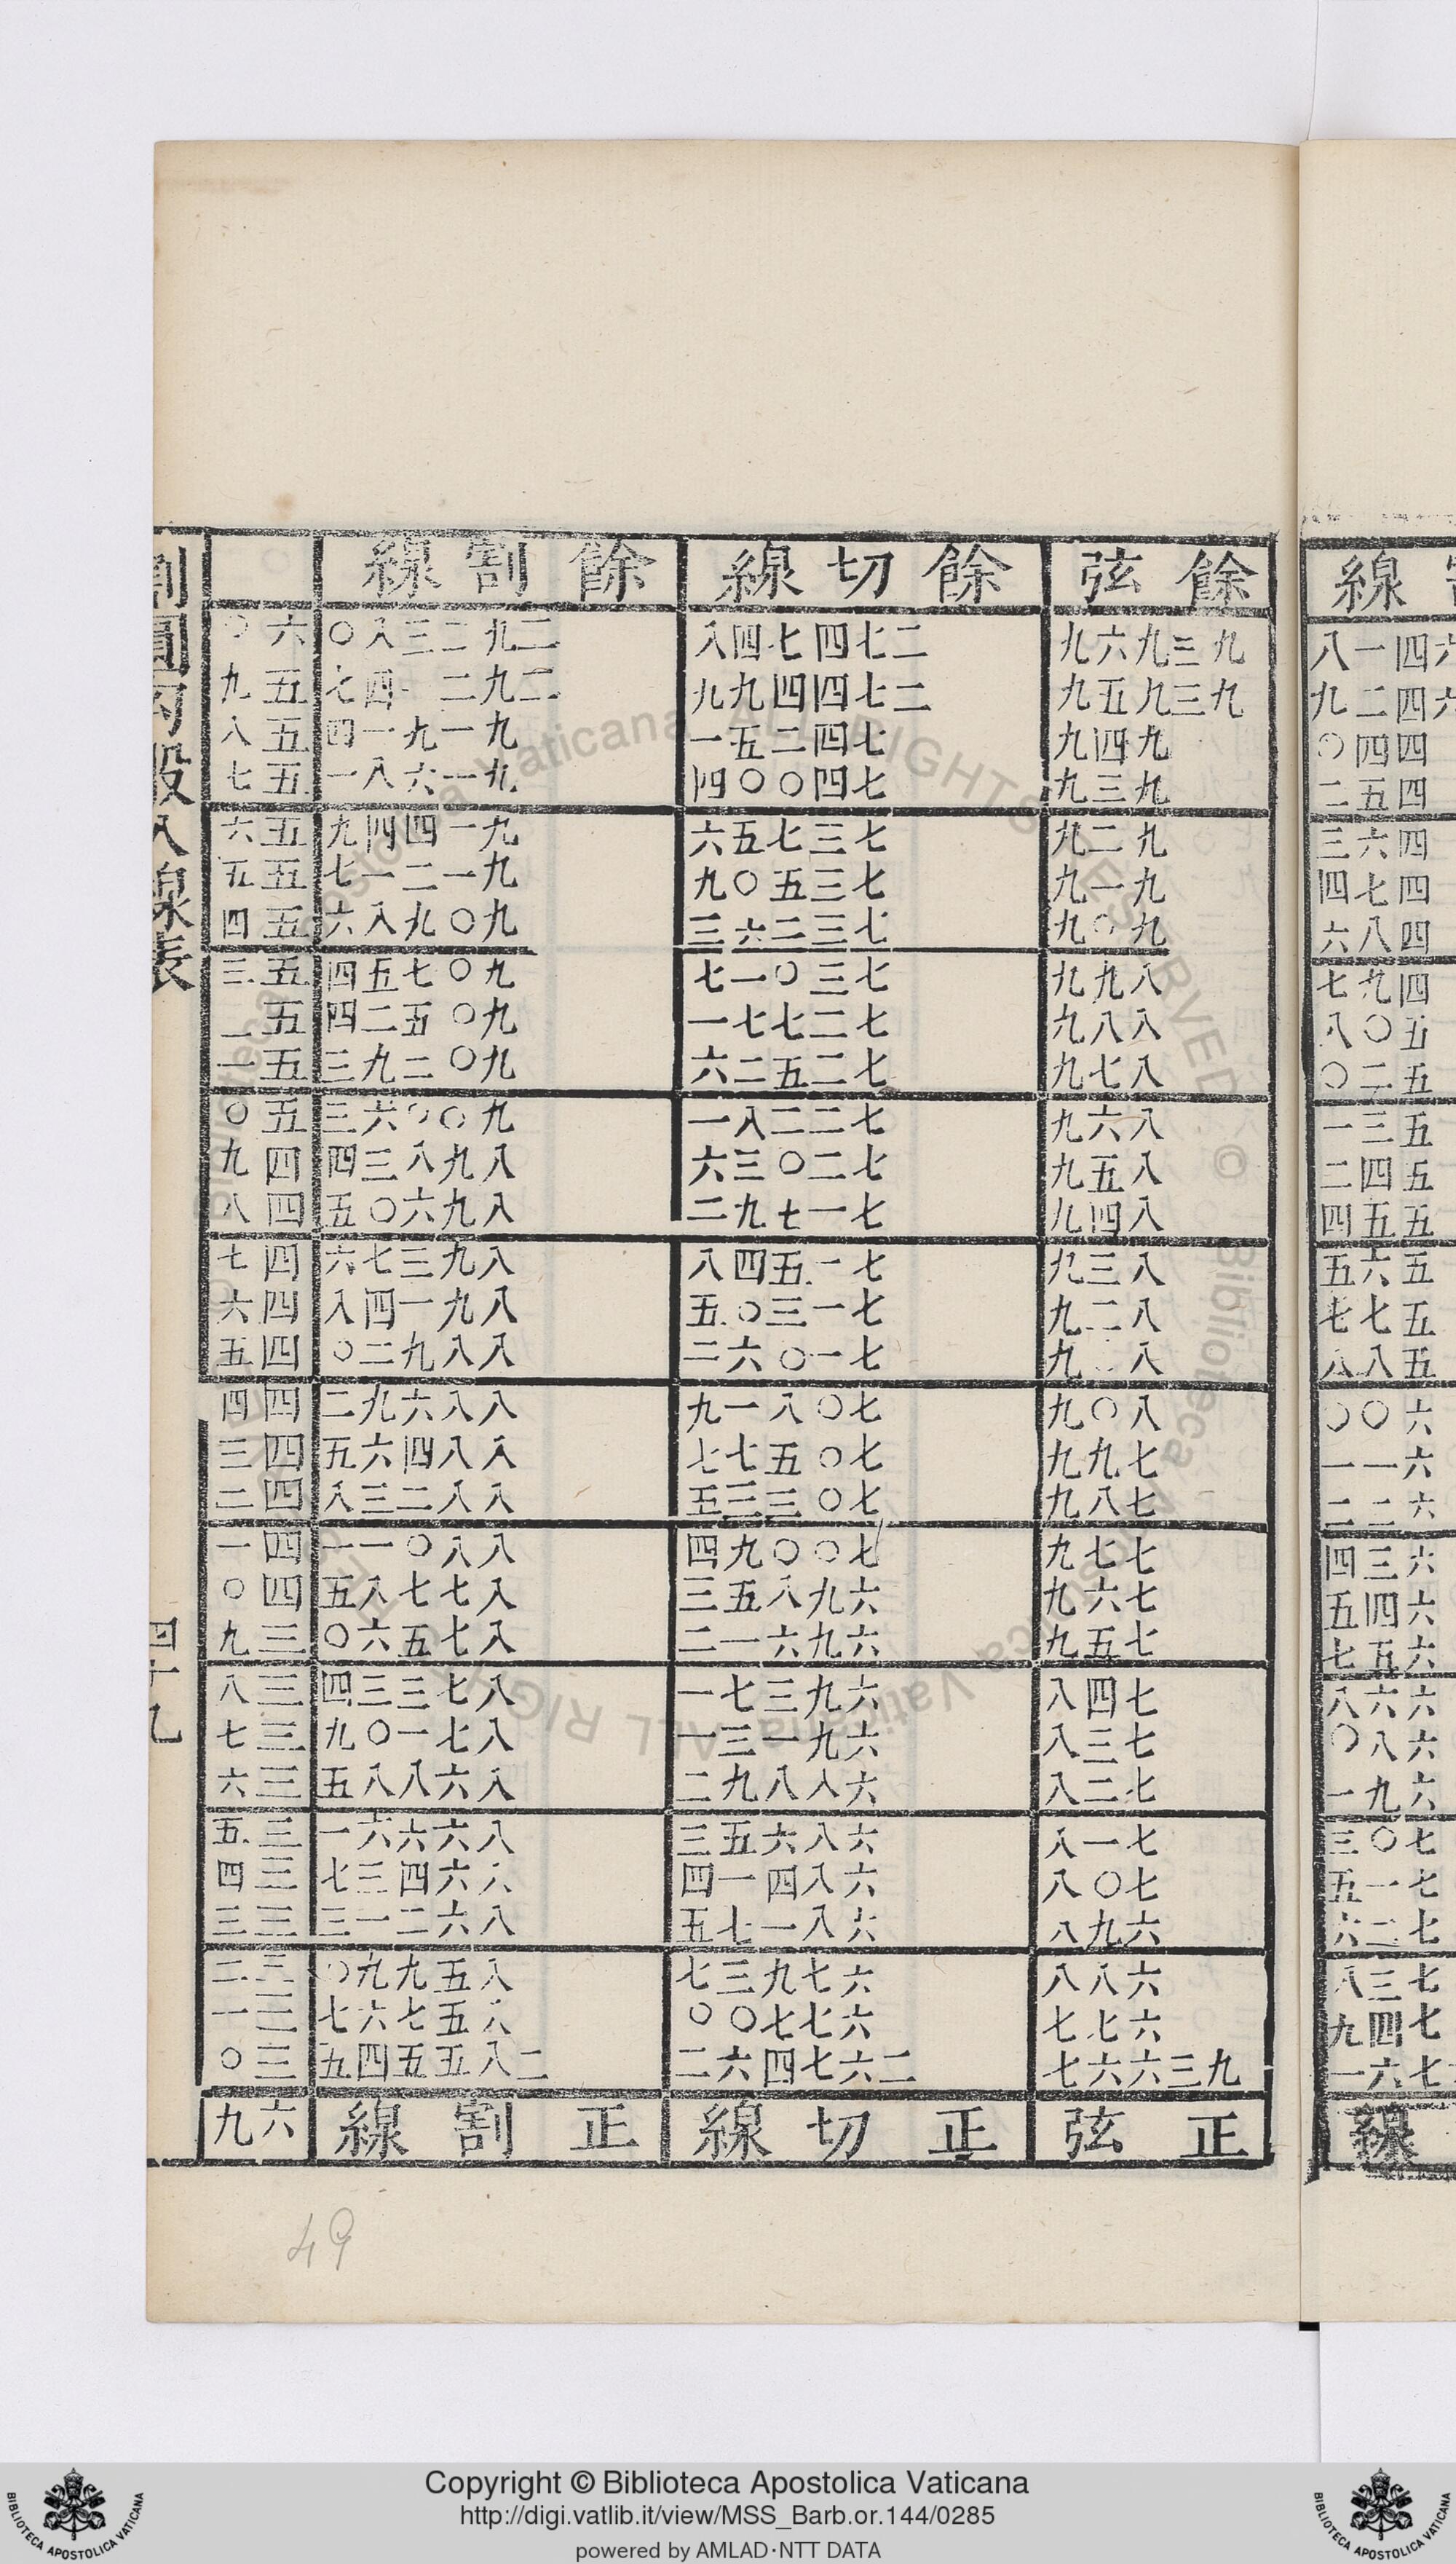 線
六四一八
六四二九
四四〇
四五二
四六三
四七四
四八六
四九七
五〇八
五二〇
五三一
五四二
五五四
五六五
五七七
五八八
六〇〇
六一一
六二二
六三四
六四五
六五七
六六八
六八〇
六九一
七〇三
七一五
七二六
七三八
七四九
七六一
線
餘弦 餘切線 餘割線
九三九六九 二七四七四八 二九二三八〇 六〇
九三九五九 二七四四九九 二九二四七 五九
九四九 七四二五一 九一九一四 五八
九三九 七四〇〇四 九一六八一 五七
九二九 七三七五六 九一四四九 五六
九一九 七三五〇九 九一二一七 五五
九〇九 七三二六三 九〇九八六 五四
八九九 七三〇一七 九〇七五四 五三
八八九 七二七七一 九〇五二四 五二
八七九 七二五二六 九〇二九三 五一
八六九 七二二八一 九〇〇六三 五〇
八五九 七二〇三六 八九八三四 四九
八四九 七一七九二 八九六〇五 四八
八三九 七一五四八 八九三七六 四七
八二九 七一三〇五 八九一四八 四六
八九 七一〇六二 八八九二〇 四五
八〇九 七〇八一九 八八六九二 四四
七九九 七〇五七七 八八四六五 四三
七八九 七〇三三五 八八二三八 四二
七七九 七〇〇九四 八八〇一一 四一
七六九 六九八五三 八七七八五 四〇
七五九 六九六一二 八七五六〇 三九
七四八 六九三七一 八七三三四 三八
七三八 六九一三一 八七一〇九 三七
七二八 六八八九二 八六八八五 三六
七一八 六八六五三 八六六六一 三五
七〇八 六八四一四 八六四三七 三四
六九八 六八一七五 八六二一三 三三
六八八 六七九三七 八五九九〇 三二
六七七 六七七〇〇 八五七六七 三一
九三六六七 二六七四六二 二八五五四五 三〇
正弦 正切線 正割線 六九
割圓勾股八線表
四十九
49
Copyright © Biblioteca Apostolica Vaticana
http://digi.vatlib.it/view/MSS_Barb.or.144/0285
powered by AMLAD·NTT DATA
BIBLIOTECA APOSTOLICA VATICANA
BIBLIOTECA APOSTOLICA VATICANA